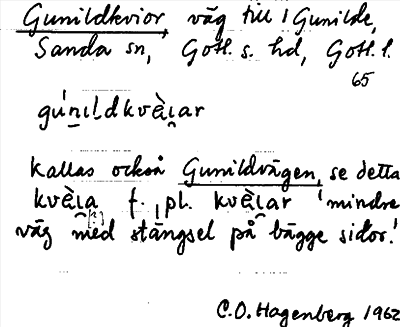 Gunildkvior väg till Gunilde,
Sanda sn, Gotl. s. hd, Gotl. l.
65
gúnıldkvὲı̯ar
kallas också Gunildvägen, se detta
kvὲı̯a f. pl. kvὲı̯ar 'mindre
väg med [?] stängsel på bägge sidor.'
C.O. Hagenberg 1962